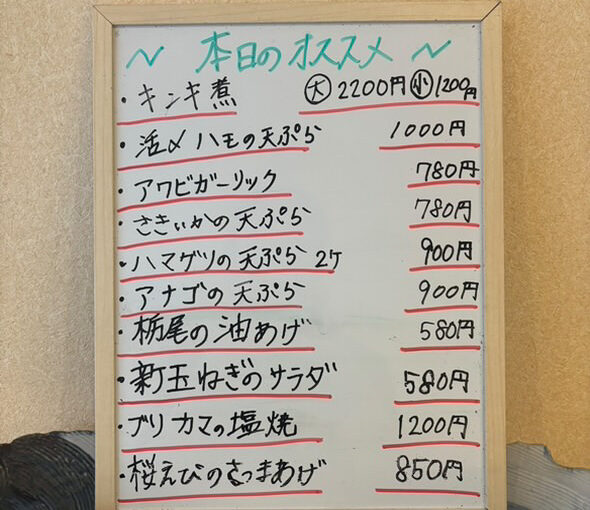 ～ 本日のオススメ ～
・キンキ煮 大 2200円 小 1200円
・活〆ハモの天ぷら 1000円
・アワビガーリック 780円
・さきいかの天ぷら 780円
・ハマグリの天ぷら 2ケ 900円
・アナゴの天ぷら 900円
・栃尾の油あげ 580円
・新玉ねぎのサラダ 580円
・ブリカマの塩焼 1200円
・桜えびのさつまあげ 850円